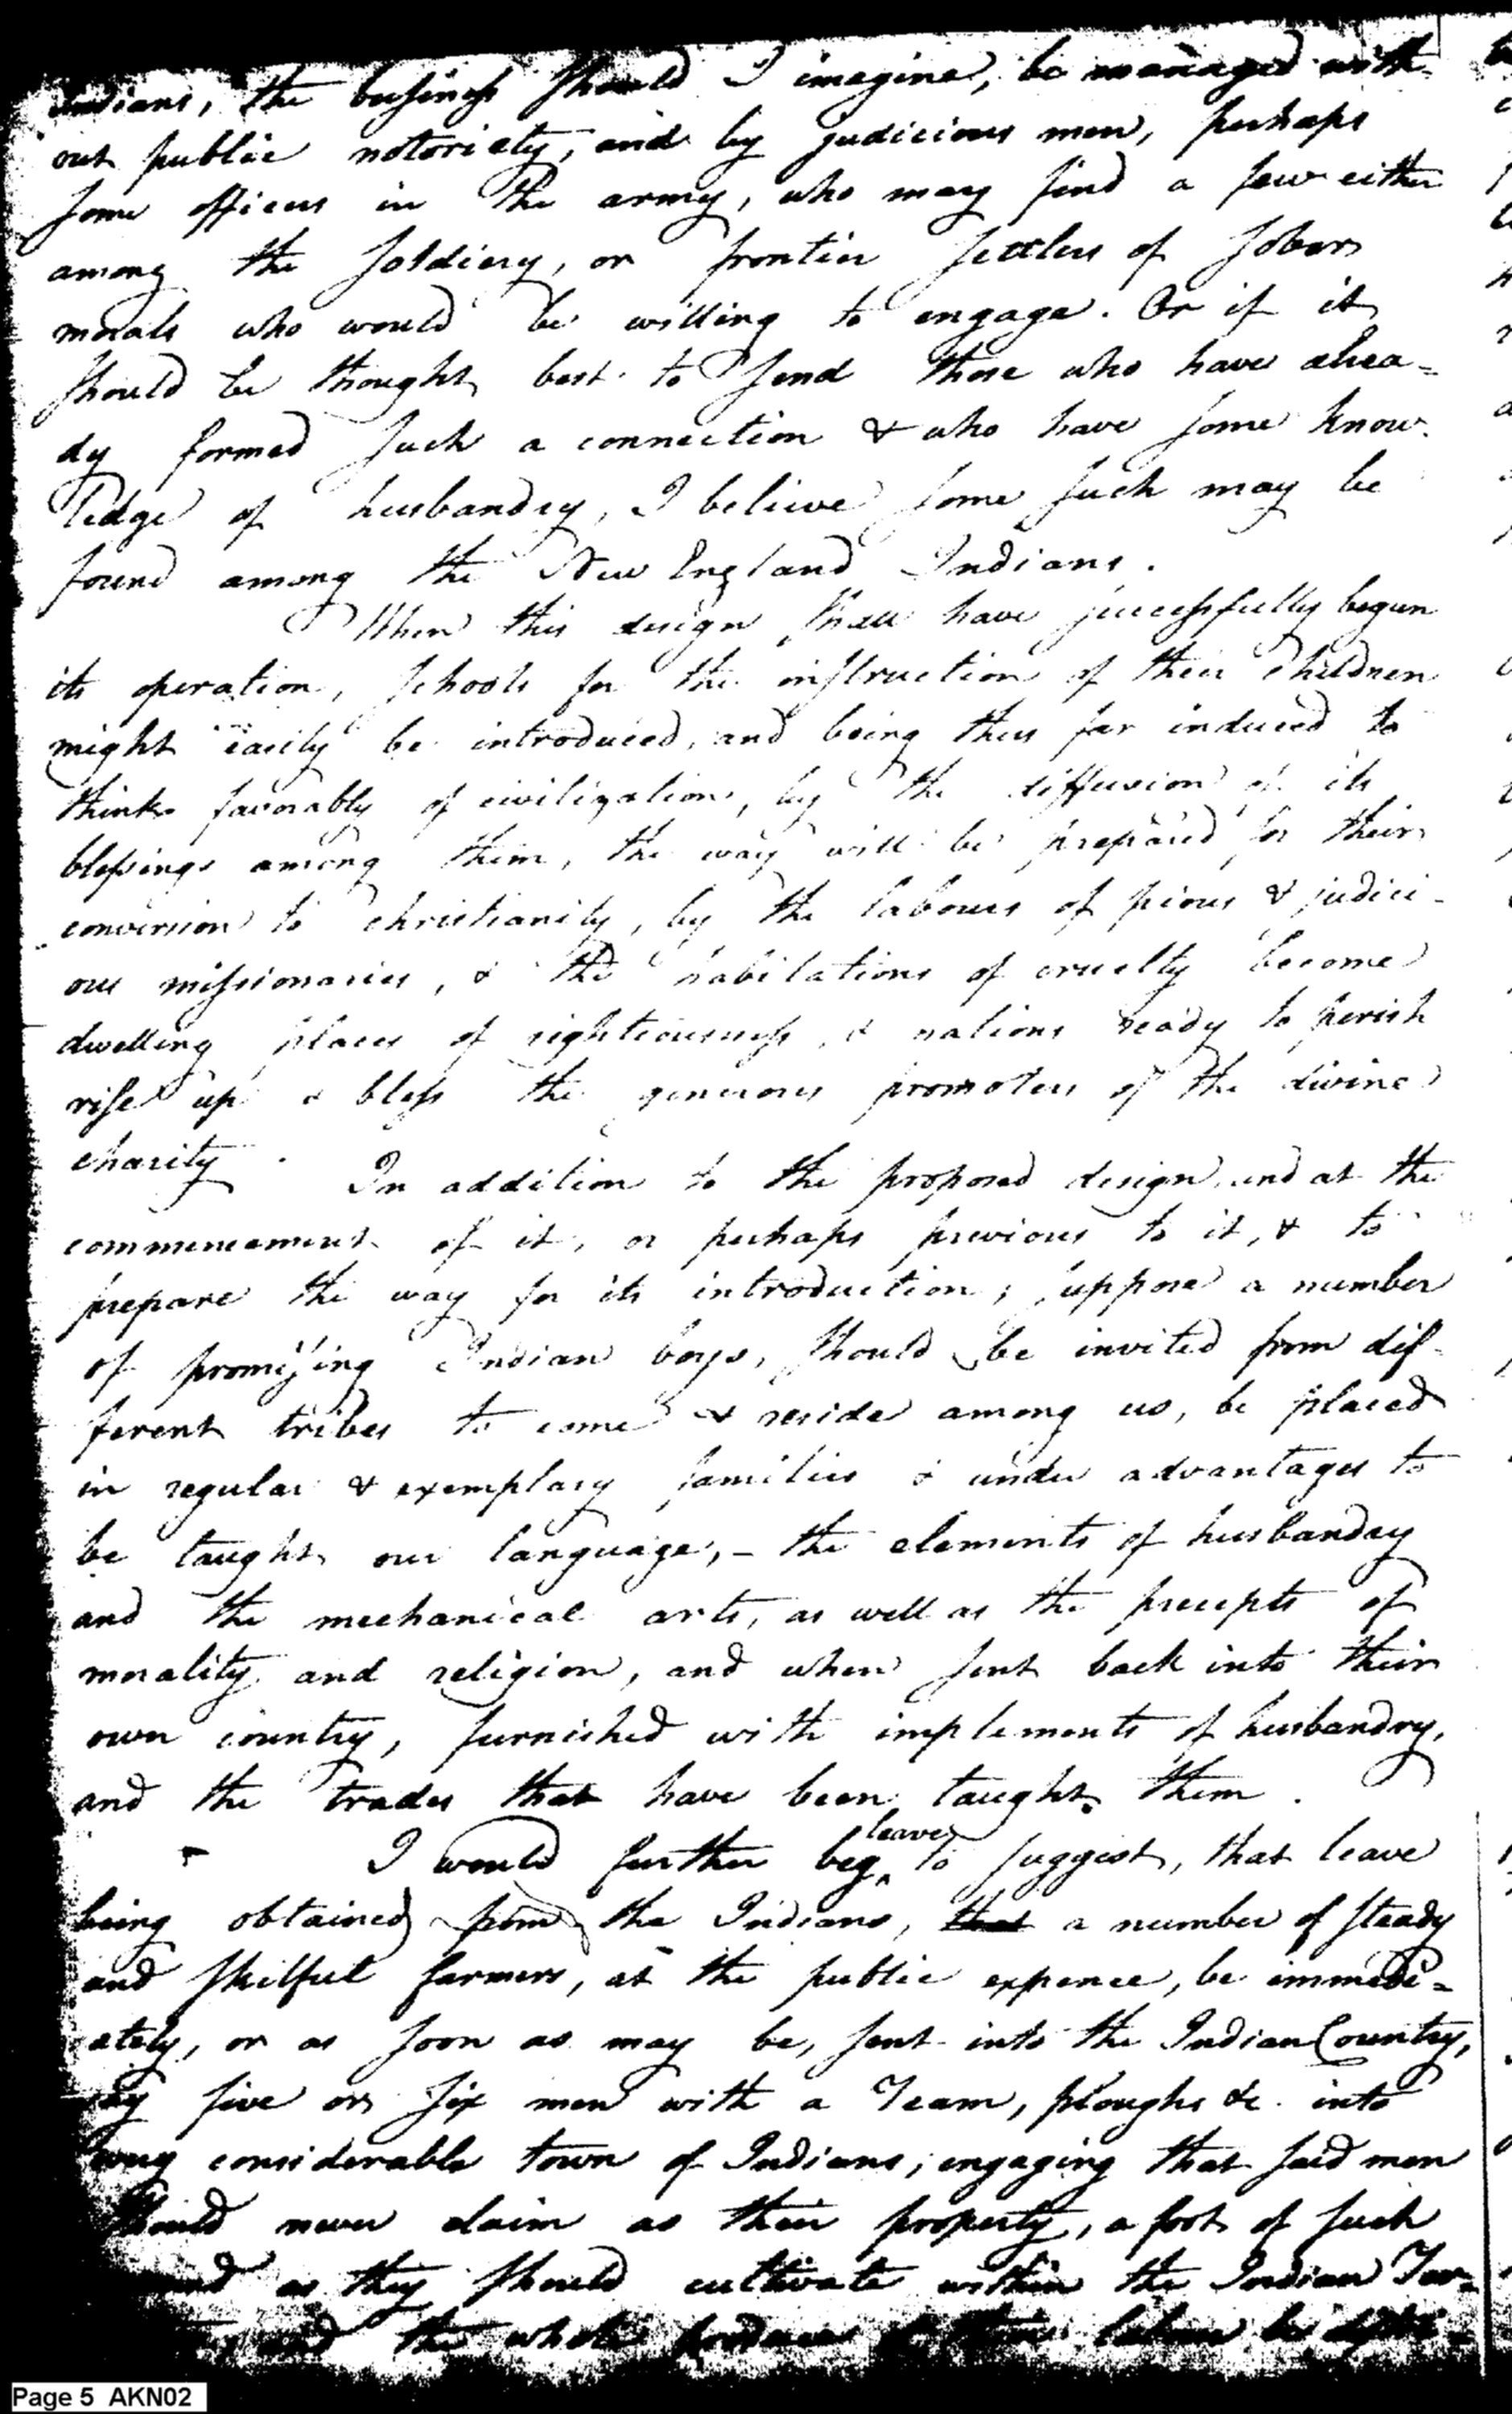 Indians, the business should I imagine, be managed with-
out public notoriety, and by judicious men, perhaps
some officers in the army, who may find a few either
among the soldiery, or frontier settlers of sober
morals who would be willing to engage. Or if it
should be thought best to send those who have alrea=
dy formed such a connection & who have some know-
ledge of husbandry, I believe some such may be
found among the New England Indians.
When this design shall have successfully begun
its operation, schools for the instruction of their children
might easily be introduced, and being thus far induced to
think favorably of civilization, by the diffusion of its
blessings among them, the way will be prepared for their
conversion to christianity, by the labours of pious & judici-
ous missionaries, & the habitations of cruelty become
dwelling places of righteousness, & nations ready to perish
rise up & bless the generous promoters of the divine
charity.
In addition to the proposed design, and at the
commencement of it, or perhaps previous to it, & to
prepare the way for its introduction; suppose a number
of promising Indian boys, should be invited from dif-
ferent tribes to come & reside among us, be placed
in regular & exemplary families & under advantages to
be taught our language, - the elements of husbandry
and the mechanical arts, as well as the precepts of
morality and religion, and when sent back into their
own country, furnished with implements of husbandry,
and the trades that have been taught them.
I would further beg leave to suggest, that leave
being obtained from the Indians, that a number of steady
and skilful farmers, at the public expence, be immedi=
ately, or as soon as may be, sent into the Indian Country,
say five or six men with a Team, ploughs &c. into
every considerable town of Indians; engaging that said men
should never claim as their property, a foot of such
land as they should cultivate within the Indian Ter-
and the whole produce of their labour be
Page 5 AKN02